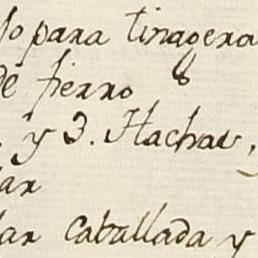 para tinagera
de fierro
y 3. Hachas,
lar caballada y